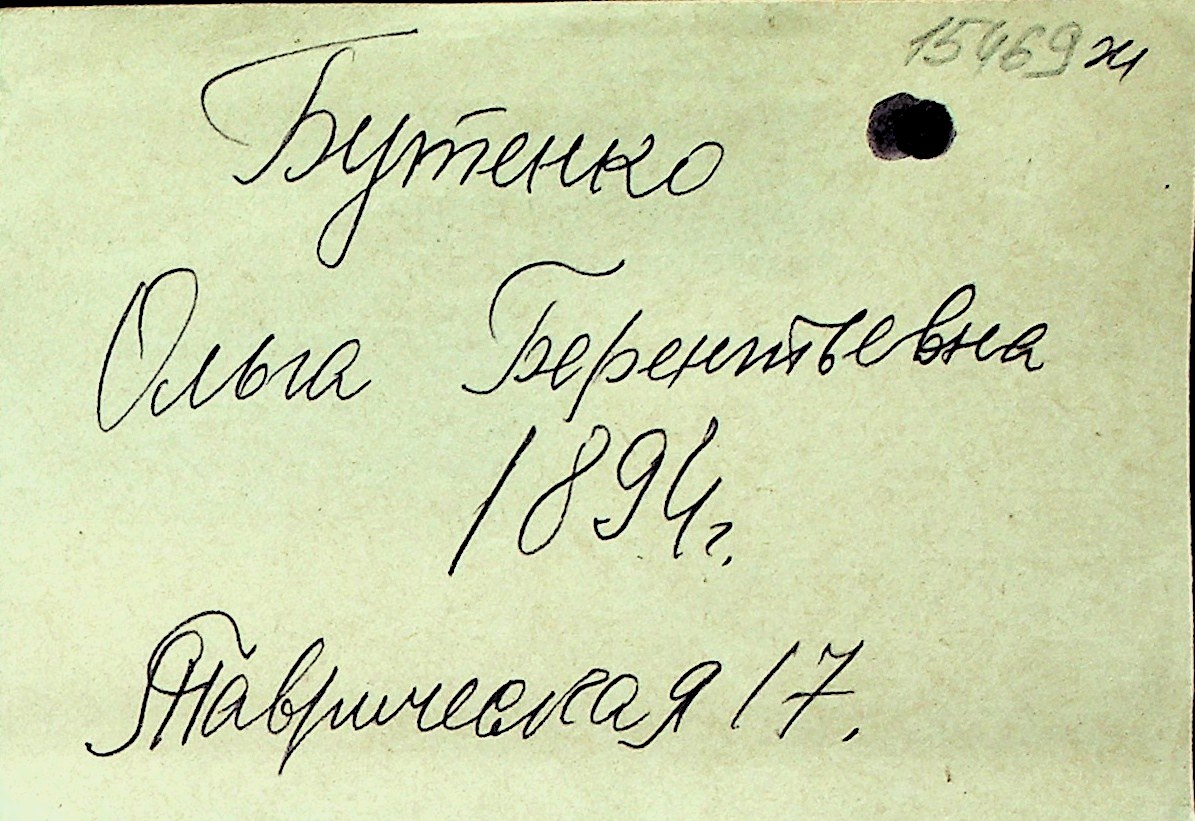 15469 ж
Бутенко
Ольга Берентьевна
1894 г.
Таврическая 17.